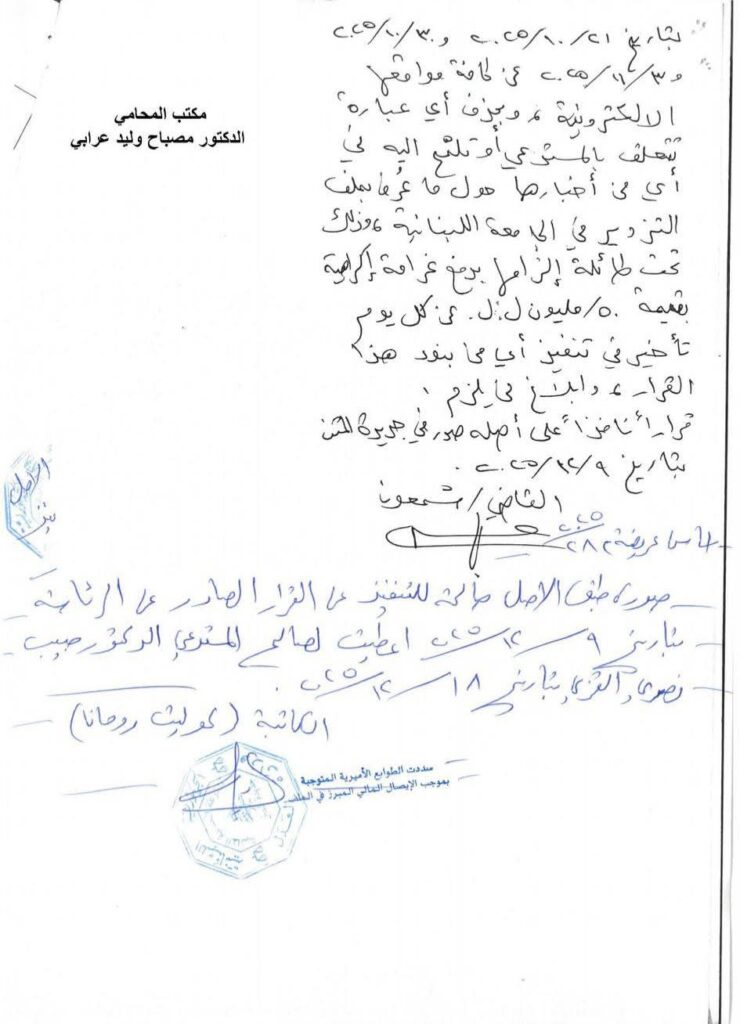 مكتب المحامي
الدكتور مصباح وليد عرابي
بتاريخ ٢٠٢٥/١٠/٢١ و ٢٠٢٥/١٠/٣٠
و ٢٠٢٥/١١/٣ عن كافة مواقعها
الالكترونية، وبحذف أي عبارة
تتعلق بالمستدعي أو تلمّح اليه في
أي من أخبارها حول ما عُرف بملف
التزوير في الجامعة اللبنانية، وذلك
تحت طائلة إلزامها بدفع غرامة إكراهية
بقيمة /٥٠/ مليون ل.ل. عن كل يوم
تأخير في تنفيذ أي من بنود هذا
القرار، وابلاغ من يلزم.
قراراً نافذاً على أصله صدر في جديدة المتن
بتاريخ ٢٠٢٥/١٢/٩.
القاضي/ شمعون
أساس عريضة ٢٨٢/٢٠٢٥
صورة طبق الاصل صالحة للتنفيذ عن القرار الصادر عن الرئاسة
بتاريخ ٢٠٢٥/١٢/٩ اعطيت لصالح المستدعي الدكتور حبيب
القزي بتاريخ ٢٠٢٥/١٢/١٨.
الكاتبة ( روحانا)
سددت الطوابع الأميرية المتوجبة
بموجب الإيصال المالي المبرز في الملف